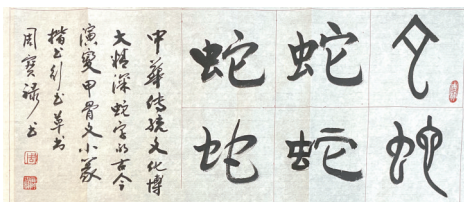 蛇
蛇
蛇
蛇
蛇
蛇
中華传統文化博
大精深蛇字的古今
演變甲骨文小篆
楷书行书草书
周寶禄书